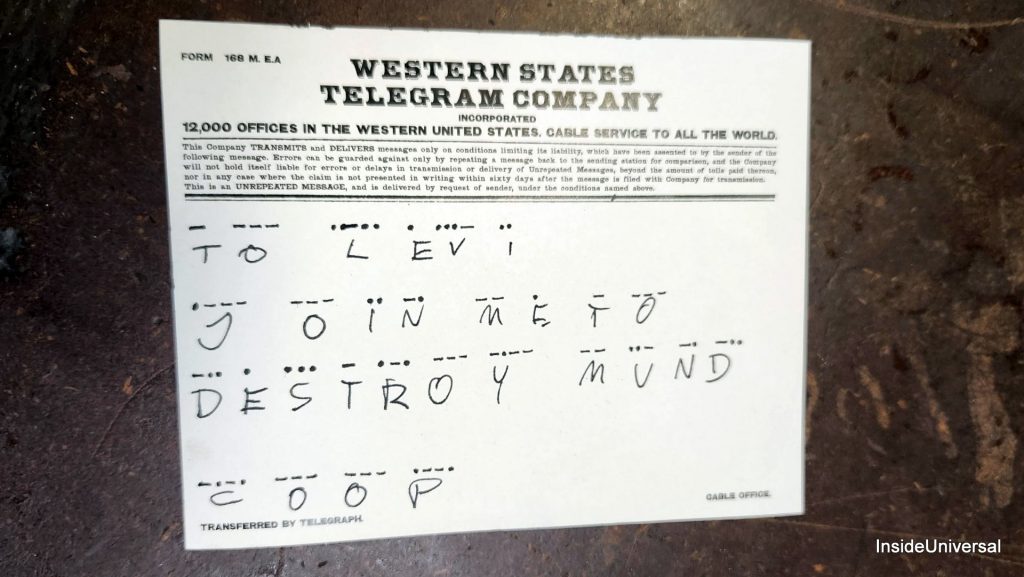 FORM 168 M. E.A
WESTERN STATES
TELEGRAM COMPANY
INCORPORATED
12,000 OFFICES IN THE WESTERN UNITED STATES. CABLE SERVICE TO ALL THE WORLD.
This Company TRANSMITS and DELIVERS messages only on conditions limiting its liability, which have been assented to by the sender of the
following message. Errors can be guarded against only by repeating a message back to the sending station for comparison, and the Company
will not hold itself liable for errors or delays in transmission or delivery of Unrepeated Messages, beyond the amount of tolls paid thereon,
nor in any case where the claim is not presented in writing within sixty days after the message is filed with Company for transmission.
This is an UNREPEATED MESSAGE, and is delivered by request of sender, under the conditions named above.
TO LEVI
JOIN ME TO
DESTROY MUND
COOP
CABLE OFFICE.
TRANSFERRED BY TELEGRAPH.
InsideUniversal